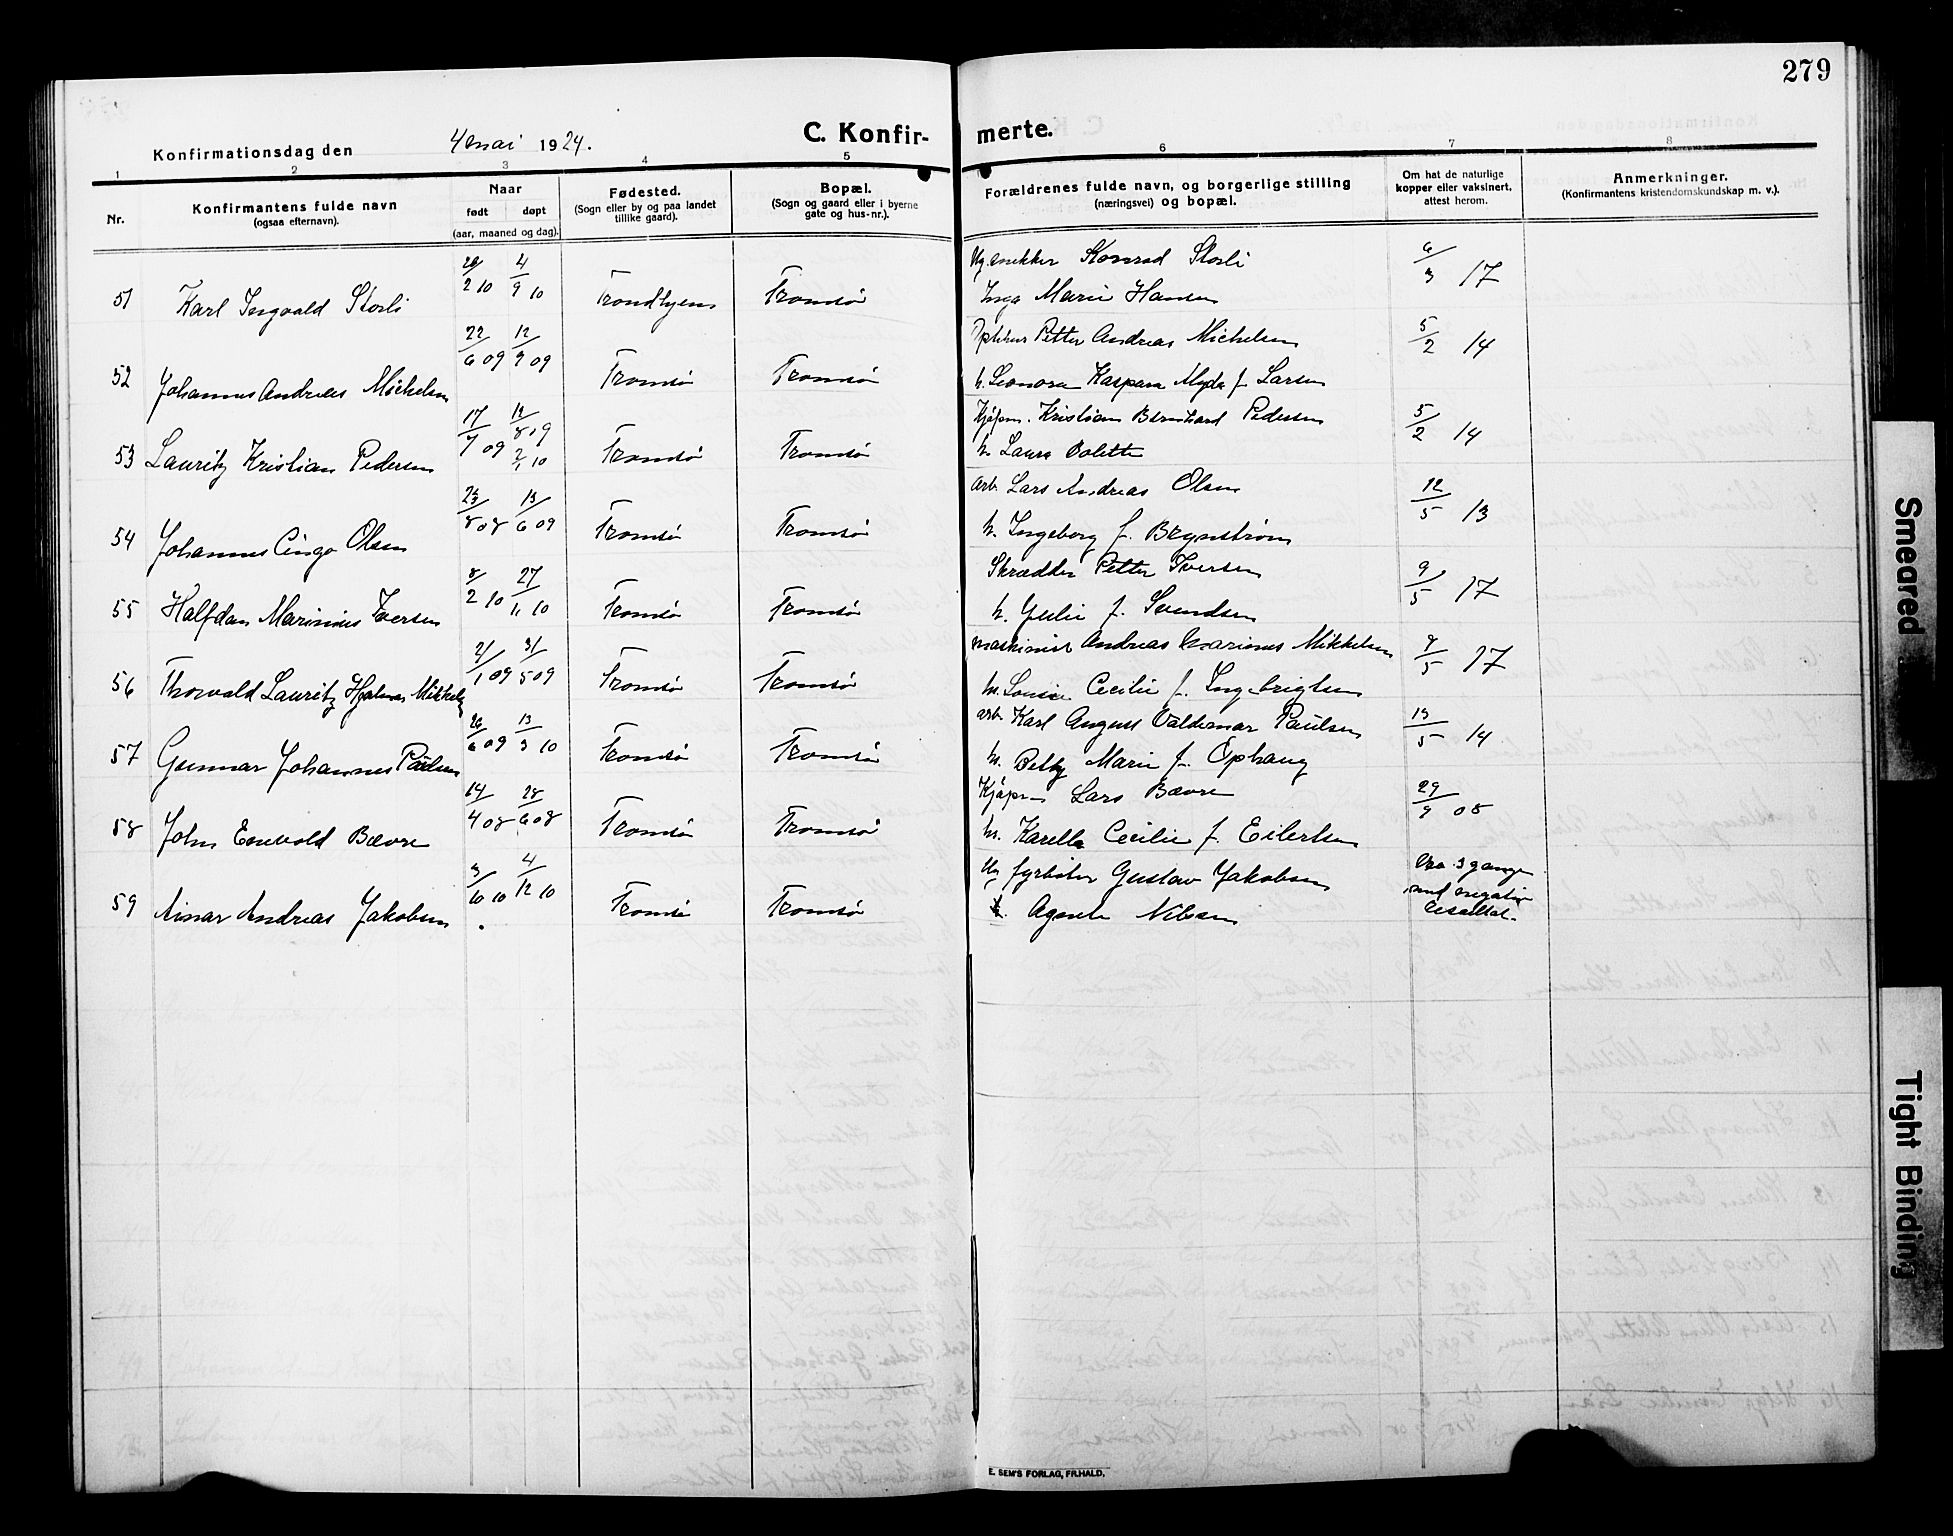 279
C. Konfirmerte.
Konfirmationsdag den 4 mai 1924.
1 2 3 4 5 6 7 8
Nr.
Konfirmantens fulde navn
(ogsaa efternavn).
Naar
født døpt
(aar, maaned og dag).
Fødested.
(Sogn eller by og paa landet
tillike gaard).
Bopæl.
(Sogn og gaard eller i byerne
gate og hus-nr.).
Forældrenes fulde navn, og borgerlige stilling
(næringsvei) og bopæl.
Om hat de naturlige
kopper eller vaksinert,
attest herom.
Anmerkninger.
(Konfirmantens kristendomskundskap m. v.).
Konrad Storli 6/3 17
51 Karl Ingvald Storli 2 10 4/9 10 Trondhjem Tromsø Inga Marie Hansen
Petter Andreas Michelsen 5/2 14
52 Johannes Andreas Michelsen 22/6 09 12/9 09 Tromsø Tromsø h. Leonora Kaspara f. Larsen
Kjøpm. Kristian Bernhard Pedersen 5/2 14
53 Lauritz Kristian Pedersen 17/7 09 8 09 2/1 10 Tromsø Tromsø h. Laura
arb. Lars Andreas Olsen 12/5 13
54 Johannes Olsen 23/8 08 13/6 09 Tromsø Tromsø h. Ingeborg f. Brynstrøm
Skrædder Petter Iversen 9/5 17
55 Halfdan Marinius Iversen 8/2 10 27/11 10 Tromsø Tromsø h. Julie f. Svendsen
maskinist Andreas Marinus Mikkelsen 7/5 17
56 Thorvald Lauritz Hjalmar Mikkels 21/1 09 31/5 09 Tromsø Tromsø h. Cecilie f. Ingebrigtsen
arb. Karl August Valdemar Paulsen 13/5 14
57 Gunnar Johannes Paulsen 26/6 09 13/3 10 Tromsø Tromsø h. Betzy Marie f. Ophaug
Kjøpm Lars Bævre 29/9 08
58 John Bævre 14/4 08 28/6 08 Tromsø Tromsø h. Karella Cecilie f. Eilertsen
fyrbøter Gustav Jakobsen 3 gange
59 Ainar Andreas Jakobsen 3/10 10 4/12 10 Tromsø Tromsø Nilsen
med negativ
resultat.
E. SEM'S FORLAG, FR.HALD.
Smeared
Tight Binding